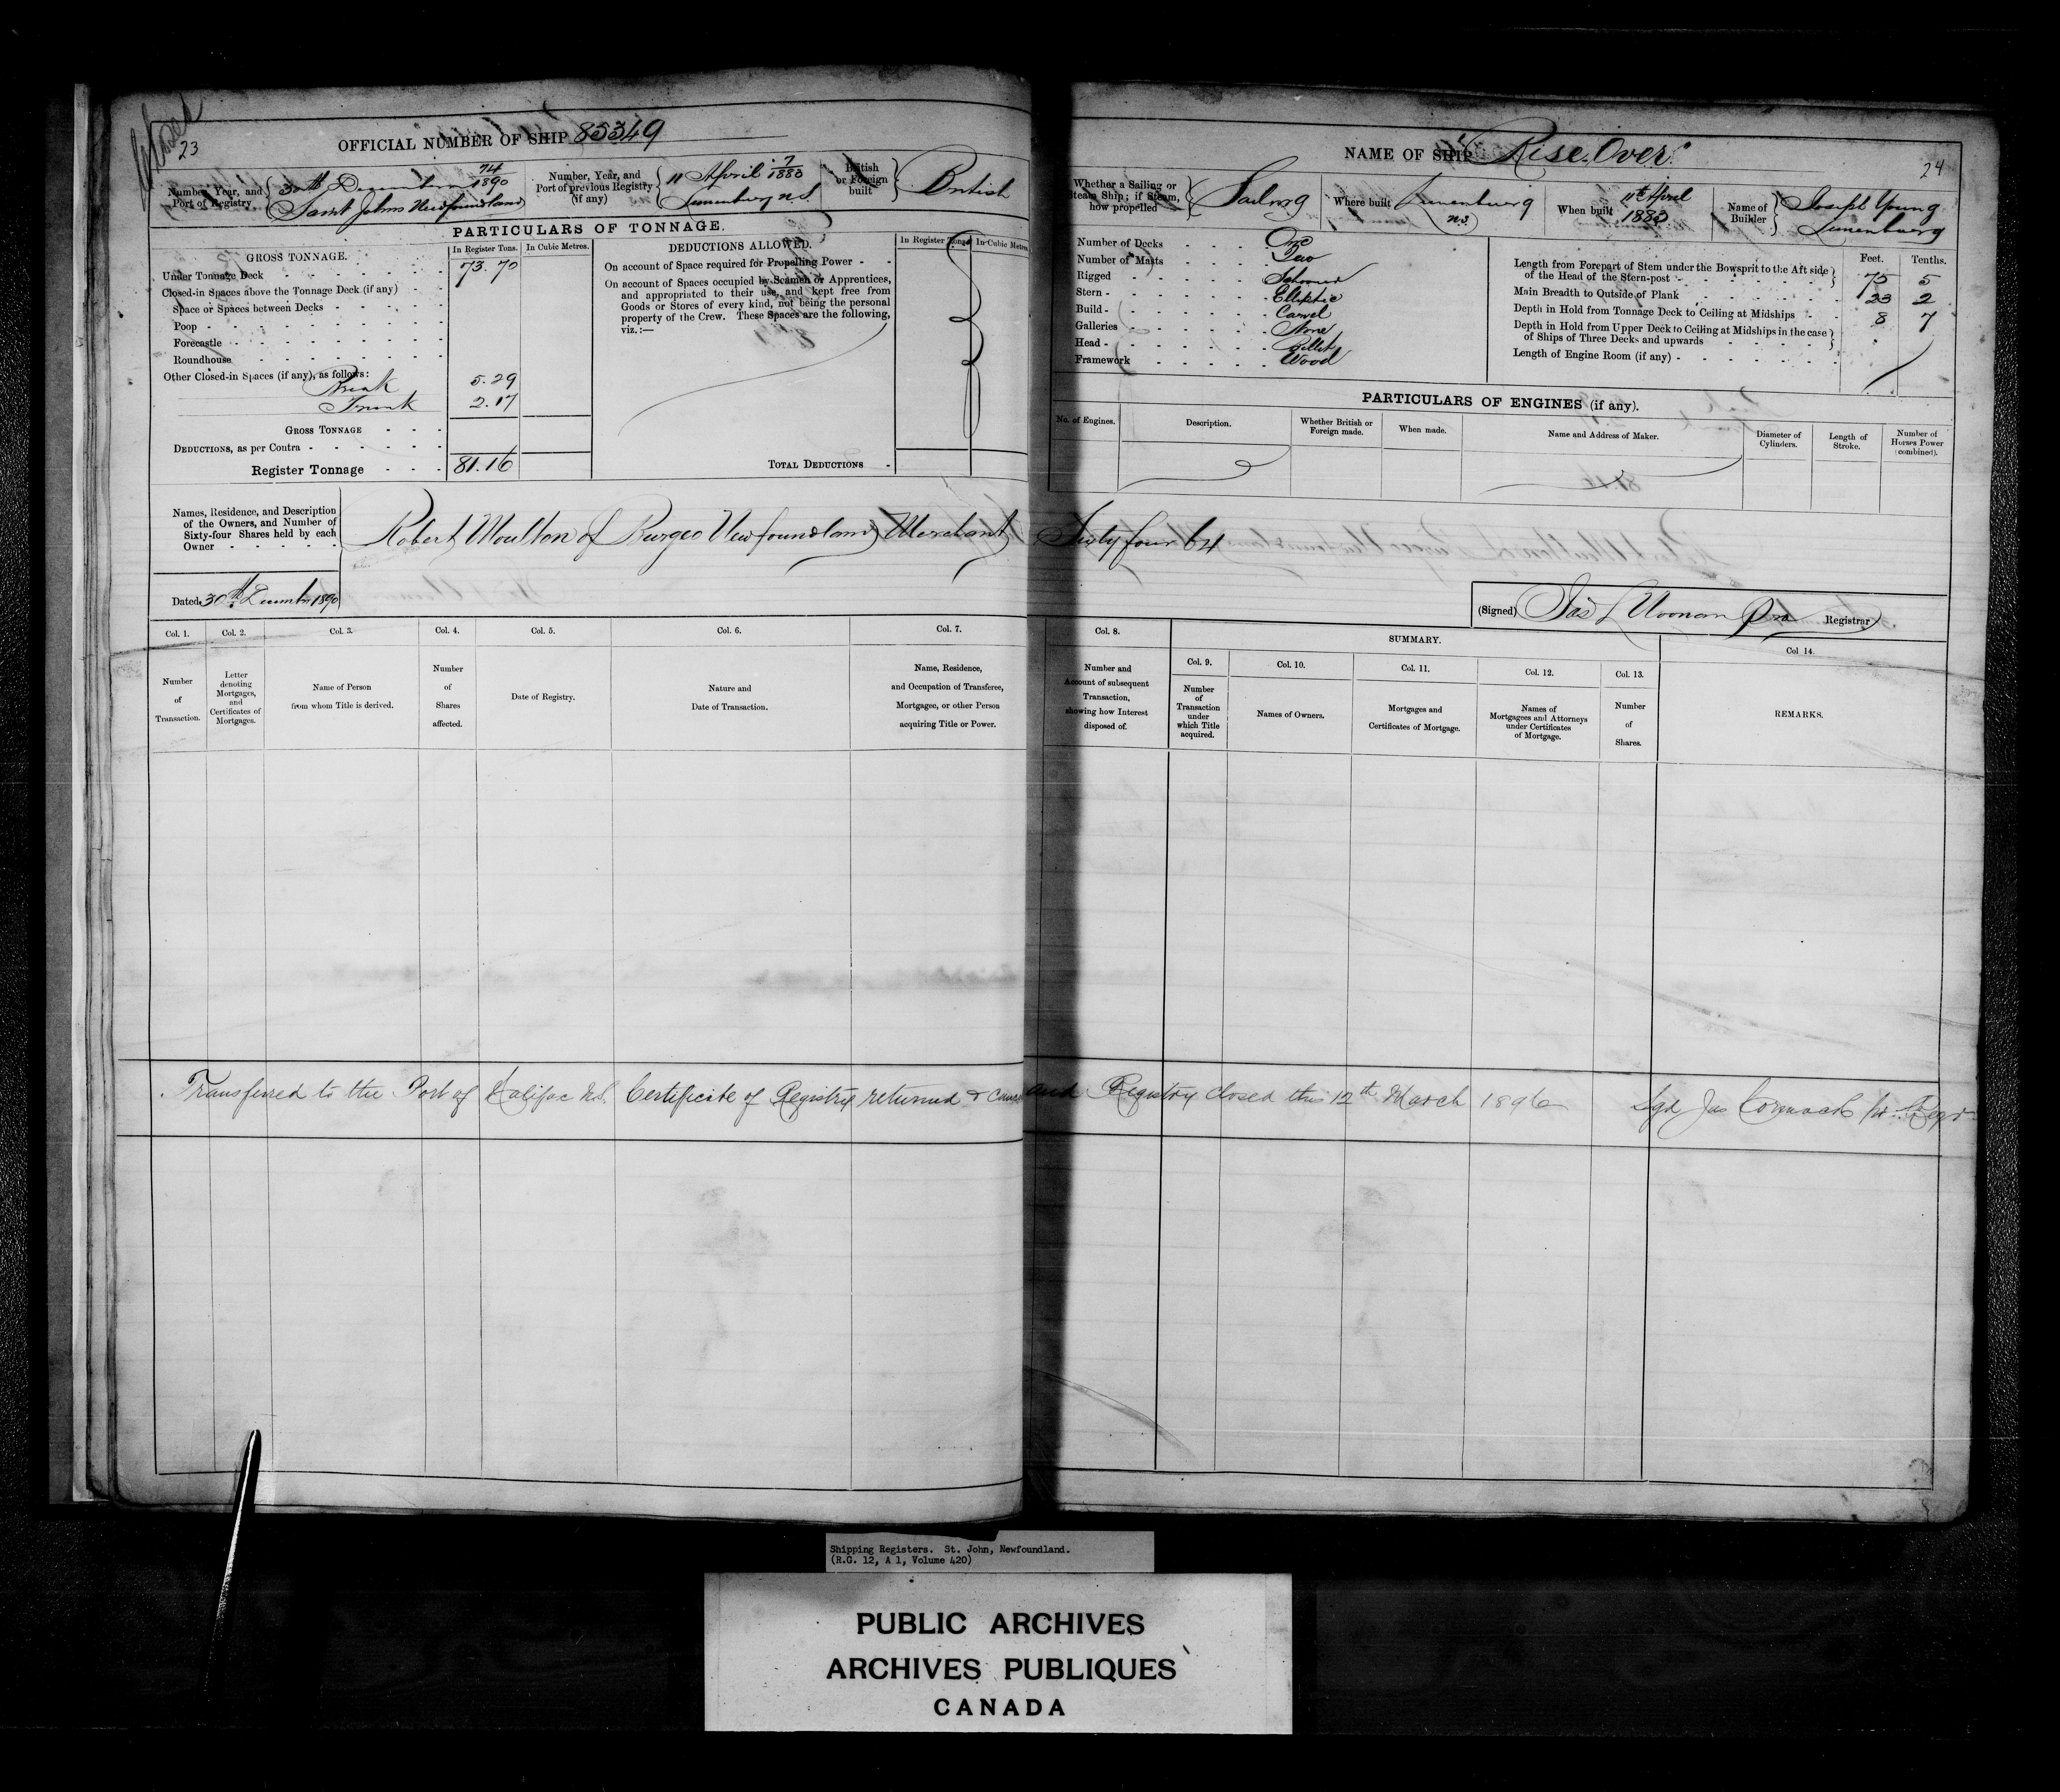 Closed
23
OFFICIAL NUMBER OF SHIP 85349
Number, Year, and Port of Registry { 30th December 74/1890
Saint Johns Newfoundland
Number, Year, and Port of previous Registry (if any) { 11 April 7/1883
Lunenburg N.S.
British or Foreign built } British
PARTICULARS OF TONNAGE.
GROSS TONNAGE.
In Register Tons.
In Cubic Metres.
Under Tonnage Deck 73.70
Closed-in Spaces above the Tonnage Deck (if any)
Space or Spaces between Decks
Poop
Forecastle
Roundhouse
Other Closed-in Spaces (if any), as follows:
Break 5.29
Trunk 2.17
GROSS TONNAGE
DEDUCTIONS, as per Contra
Register Tonnage 81.16
DEDUCTIONS ALLOWED.
In Register Tons.
In Cubic Metres.
On account of Space required for Propelling Power
On account of Spaces occupied by Seamen or Apprentices,
and appropriated to their use, and kept free from
Goods or Stores of every kind, not being the personal
property of the Crew. These Spaces are the following,
viz.:—
TOTAL DEDUCTIONS
NAME OF SHIP "Rise Over"
24
Whether a Sailing or Steam Ship; if Steam, how propelled { Sailing
Where built { Lunenburg N.S.
When built 11th April 1883
Name of Builder } Joseph Young
Lunenburg
Number of Decks One
Number of Masts Two
Rigged Schooner
Stern Elliptic
Build Carvel
Galleries None
Head Billet
Framework Wood
Feet. Tenths.
Length from Forepart of Stem under the Bowsprit to the Aft side
of the Head of the Stern-post 75 5
Main Breadth to Outside of Plank 23 2
Depth in Hold from Tonnage Deck to Ceiling at Midships 8 7
Depth in Hold from Upper Deck to Ceiling at Midships in the case
of Ships of Three Decks and upwards
Length of Engine Room (if any)
PARTICULARS OF ENGINES (if any).
No. of Engines.
Description.
Whether British or Foreign made.
When made.
Name and Address of Maker.
Diameter of Cylinders.
Length of Stroke.
Number of Horses Power (combined).
Names, Residence, and Description
of the Owners, and Number of
Sixty-four Shares held by each
Owner
Robert Moulton of Burgeo Newfoundland Merchant Sixty four 64
Dated 30th December 1890
(Signed) Registrar
Col. 1. Col. 2. Col. 3. Col. 4. Col. 5. Col. 6. Col. 7. Col. 8. SUMMARY. Col. 14.
Col. 9. Col. 10. Col. 11. Col. 12. Col. 13.
Number of Transaction.
Letter denoting Mortgages, and Certificates of Mortgages.
Name of Person from whom Title is derived.
Number of Shares affected.
Date of Registry.
Nature and Date of Transaction.
Name, Residence, and Occupation of Transferee, Mortgagee, or other Person acquiring Title or Power.
Number and Account of subsequent Transaction, showing how Interest disposed of.
Number of Transaction under which Title acquired.
Names of Owners.
Mortgages and Certificates of Mortgage.
Names of Mortgagees and Attorneys under Certificates of Mortgage.
Number of Shares.
REMARKS.
Transferred to the Port of Halifax N.S. Certificate of Registry returned & and Registry closed this 12th March 1896 Sgd Jas Cormack pr Regr
Shipping Registers. St. John, Newfoundland.
(R.G. 12, A 1, Volume 420)
PUBLIC ARCHIVES
ARCHIVES PUBLIQUES
CANADA